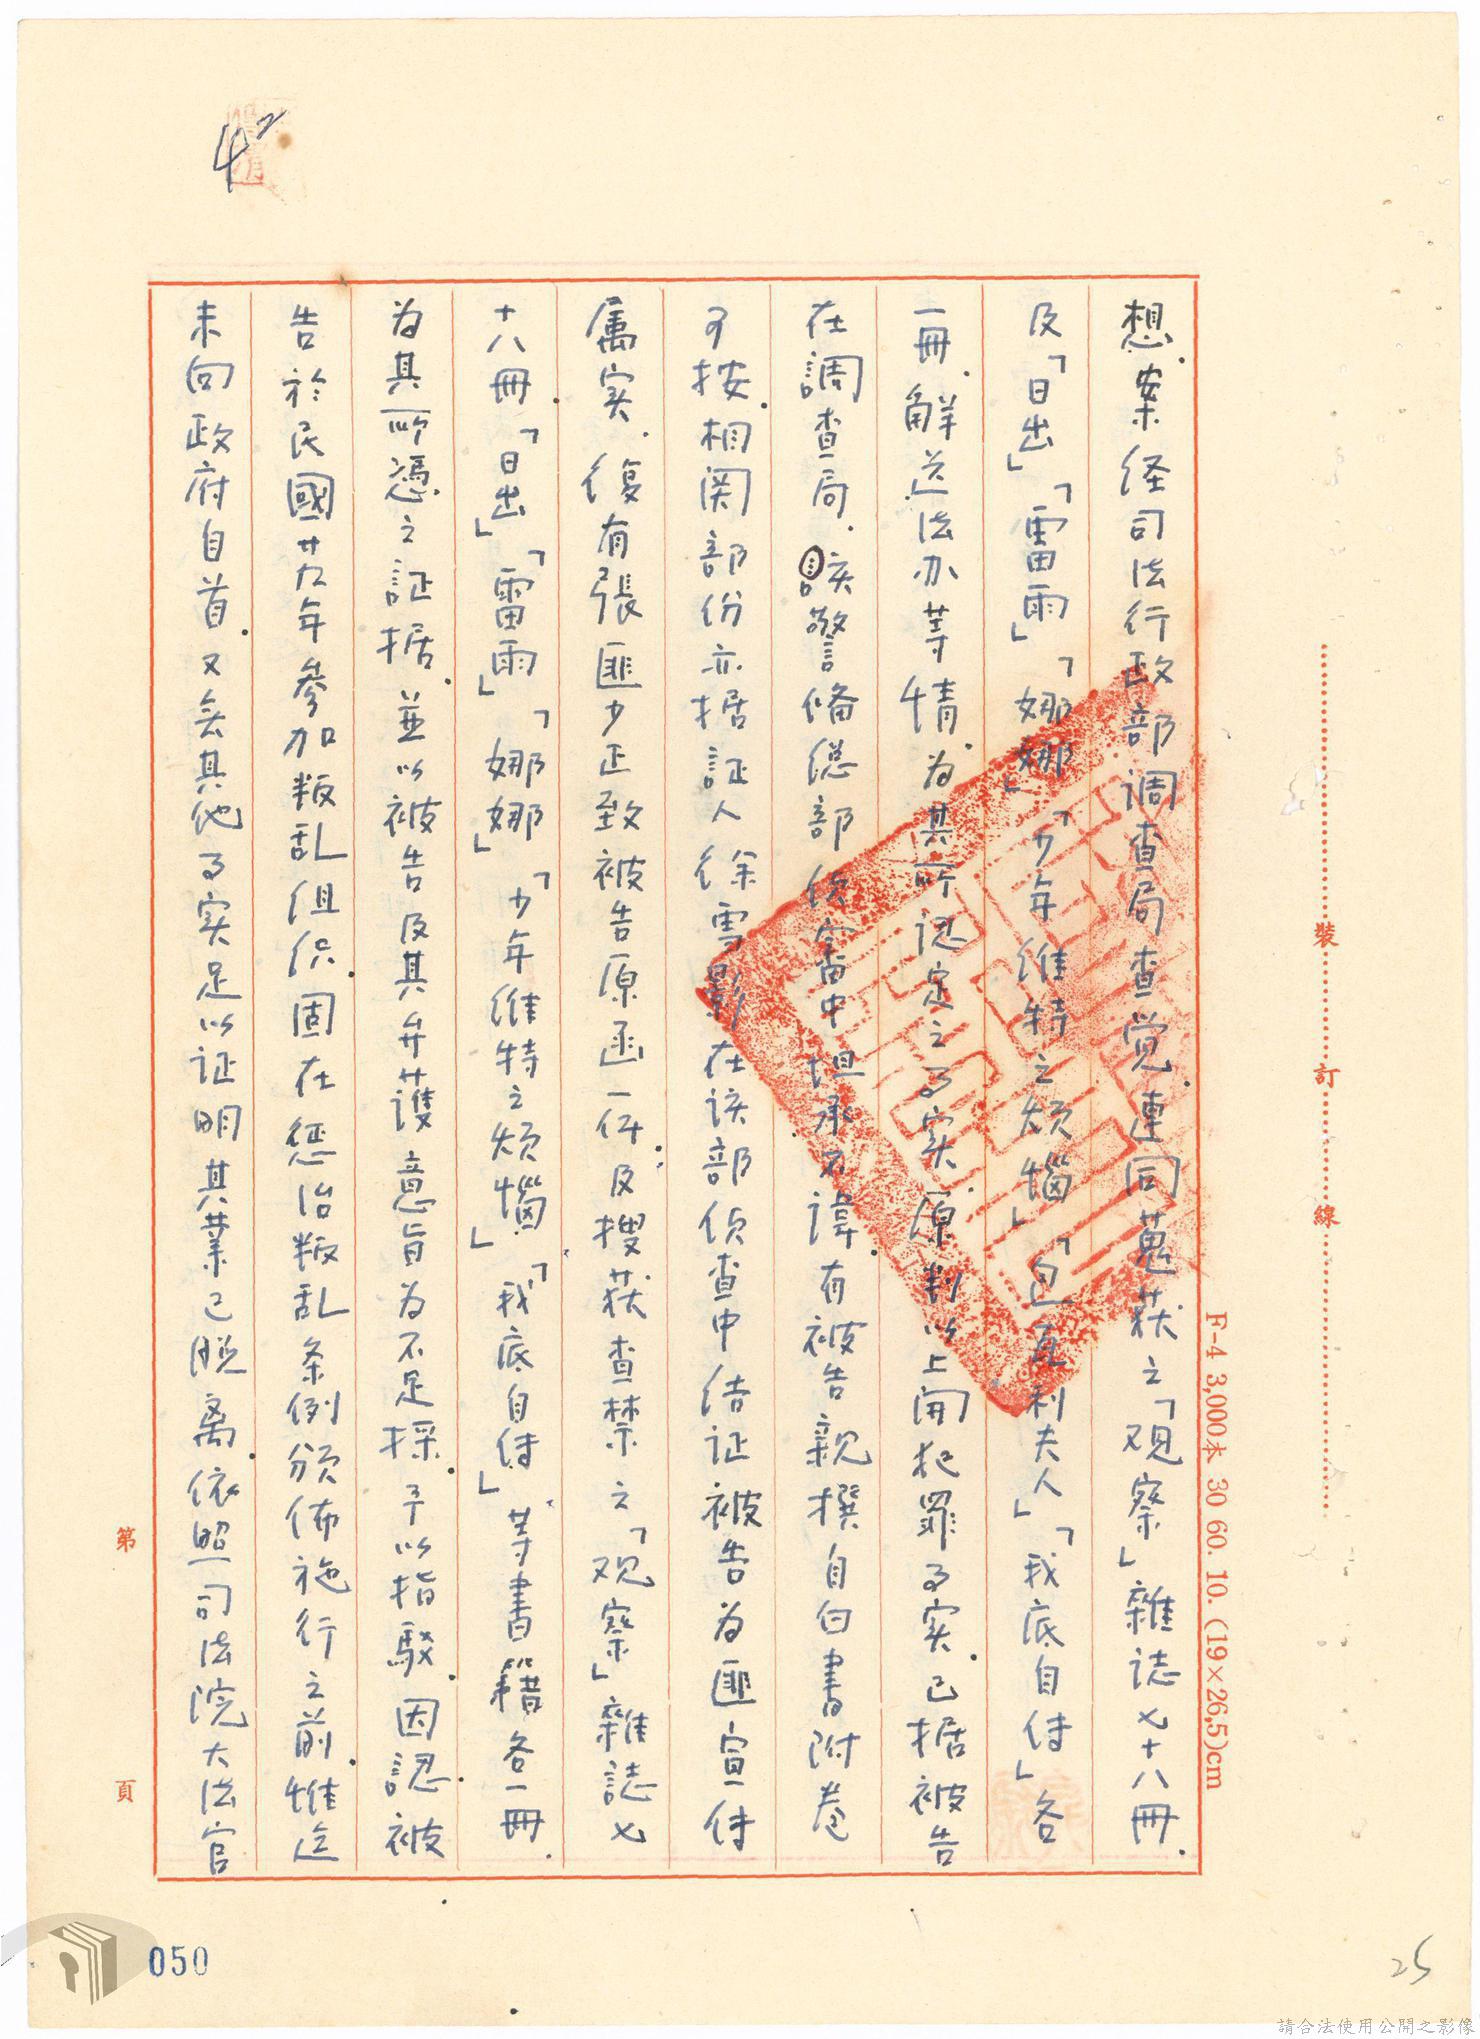 42
想．案经司法行政部调查局查觉．連同蒐获之「观察」雜誌七十八冊．
及「日出」「雷雨」「娜娜」「少年維特之烦惱」「包瓦利夫人」「我底自传」各
一冊．解送法办等情．为其所认定之事实．原判以上開犯罪事实．已据被告
在調查局．該警备总部侦審中坦承不諱．有被告親撰自白書附卷
可按．相関部份亦据証人徐雪影在该部侦查中结证被告为匪宣传
属实．復有張匪少正致被告原函一件．及搜获查禁之「观察」雜誌七
十八冊．「日出」「雷雨」「娜娜」「少年維特之烦惱」「我底自传」等書籍各一冊．
为其所憑之証据．並以被告及其弁護意旨为不足採．予以指駁．因認被
告於民國廿九年參加叛乱组织．固在惩治叛乱条例颁佈施行之前．惟迄
未向政府自首．又无其他事实足以证明其業已脱离．依照司法院大法官
裝
訂
線
F-4 3,000本 30 60. 10. (19×26,5)cm
第
頁
050
25
請合法使用公開之影像